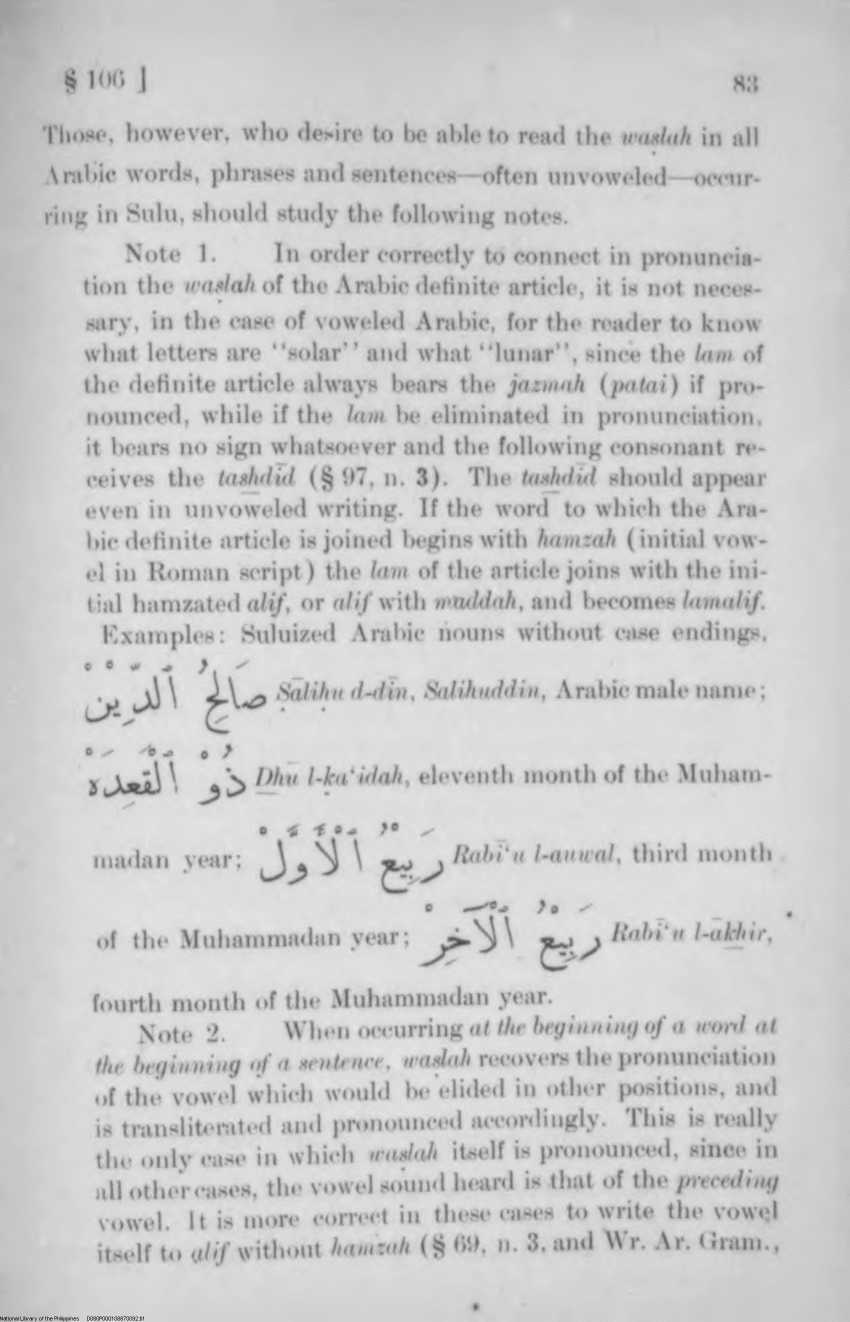 § 106 ]
83
Those, however, who desire to be able to read the waṣlah in all
Arabic words, phrases and sentences—often unvoweled—occur-
ring in Sulu, should study the following notes.
Note 1. In order correctly to connect in pronuncia-
tion the waṣlah of the Arabic definite article, it is not neces-
sary, in the case of voweled Arabic, for the reader to know
what letters are "solar" and what "lunar", since the lam of
the definite article always bears the jazmah (patai) if pro-
nounced, while if the lam be eliminated in pronunciation,
it bears no sign whatsoever and the following consonant re-
ceives the tashdīd (§ 97, n. 3). The tashdīd should appear
even in unvoweled writing. If the word to which the Ara-
bic definite article is joined begins with hamzah (initial vow-
el in Roman script) the lam of the article joins with the ini-
tial hamzated alif, or alif with maddah, and becomes lamalif.
Examples: Suluized Arabic nouns without case endings,
صَالِحُ ٱلدِّينْ Ṣāliḥu d-dīn, Salihuddin, Arabic male name;
ذُو ٱلْقَعِدَهْ Dhū l-ḳaʻidah, eleventh month of the Muham-
madan year; رَبِيعُ ٱلْأَوَّلْ Rabīʻu l-auwal, third month
of the Muhammadan year; رَبِيعُ ٱلْآخِرْ Rabīʻu l-ākhir,
fourth month of the Muhammadan year.
Note 2. When occurring at the beginning of a word at
the beginning of a sentence, waṣlah recovers the pronunciation
of the vowel which would be elided in other positions, and
is transliterated and pronounced accordingly. This is really
the only case in which waṣlah itself is pronounced, since in
all other cases, the vowel sound heard is that of the preceding
vowel. It is more correct in these cases to write the vowel
itself to alif without hamzah (§ 69, n. 3, and Wr. Ar. Gram.,
National Library of the Philippines